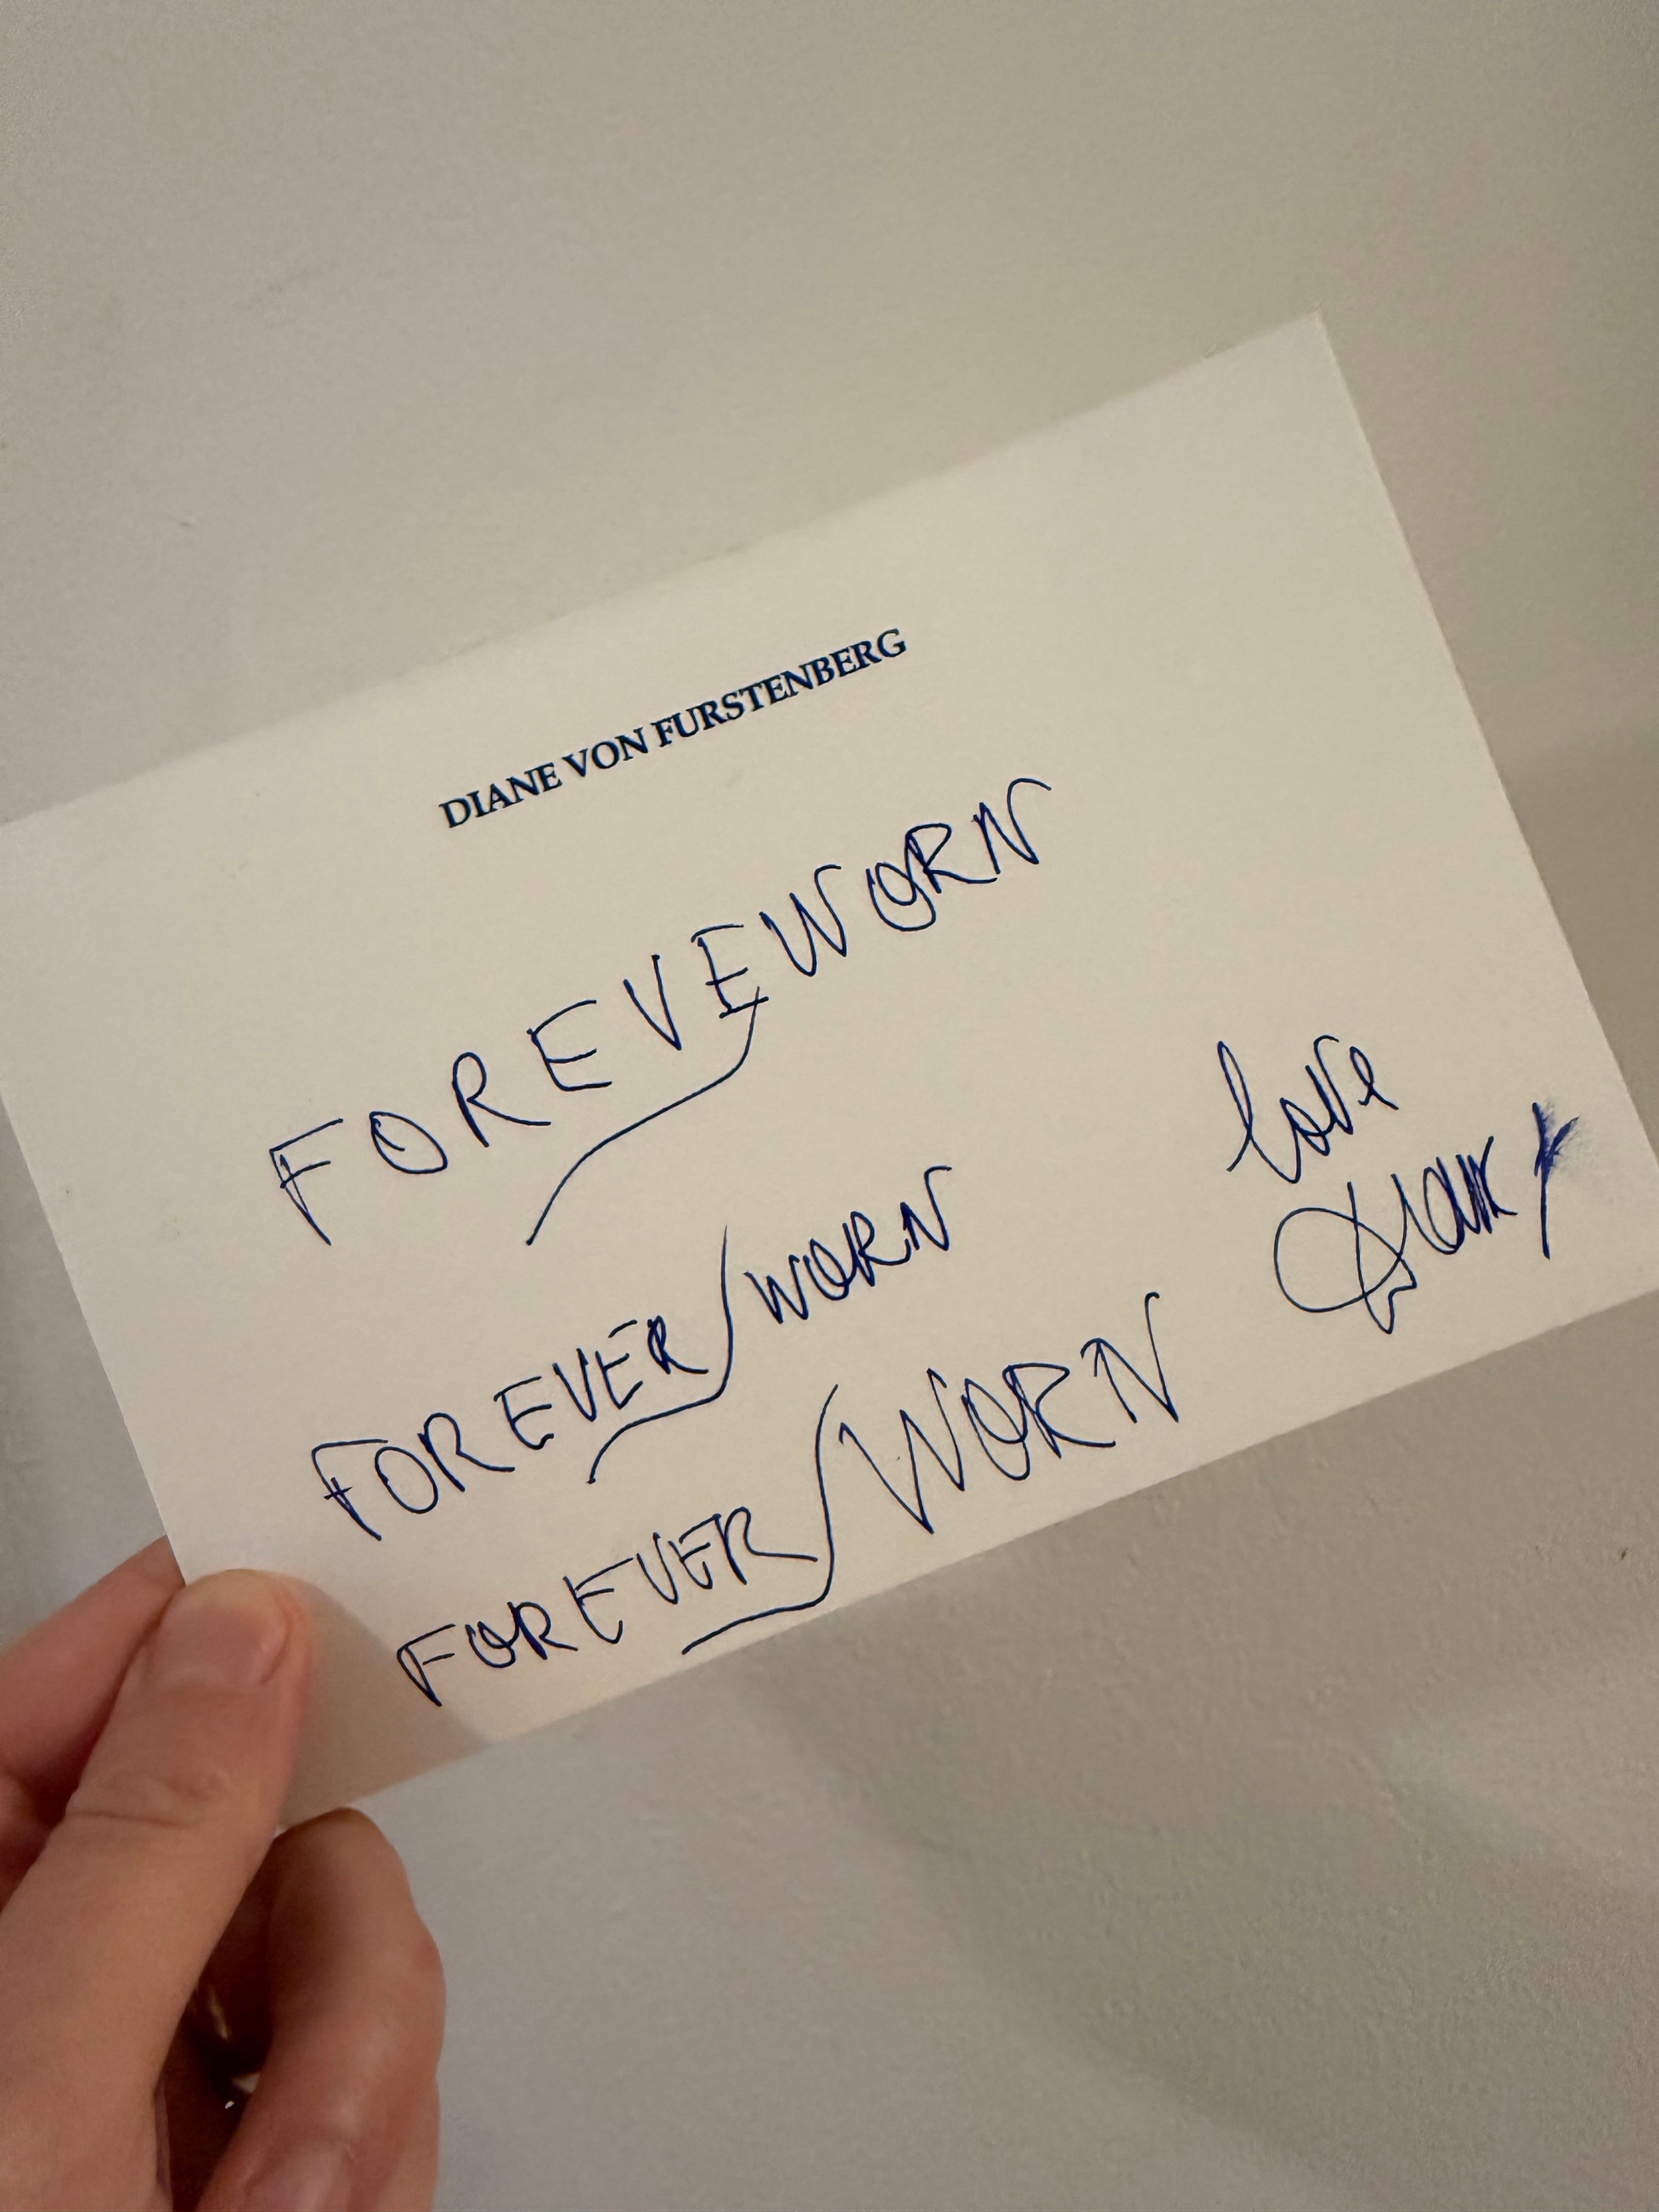 DIANE VON FURSTENBERG
FOREVEWORN
FOREVER/WORN
FOREVER/WORN
love
Diane